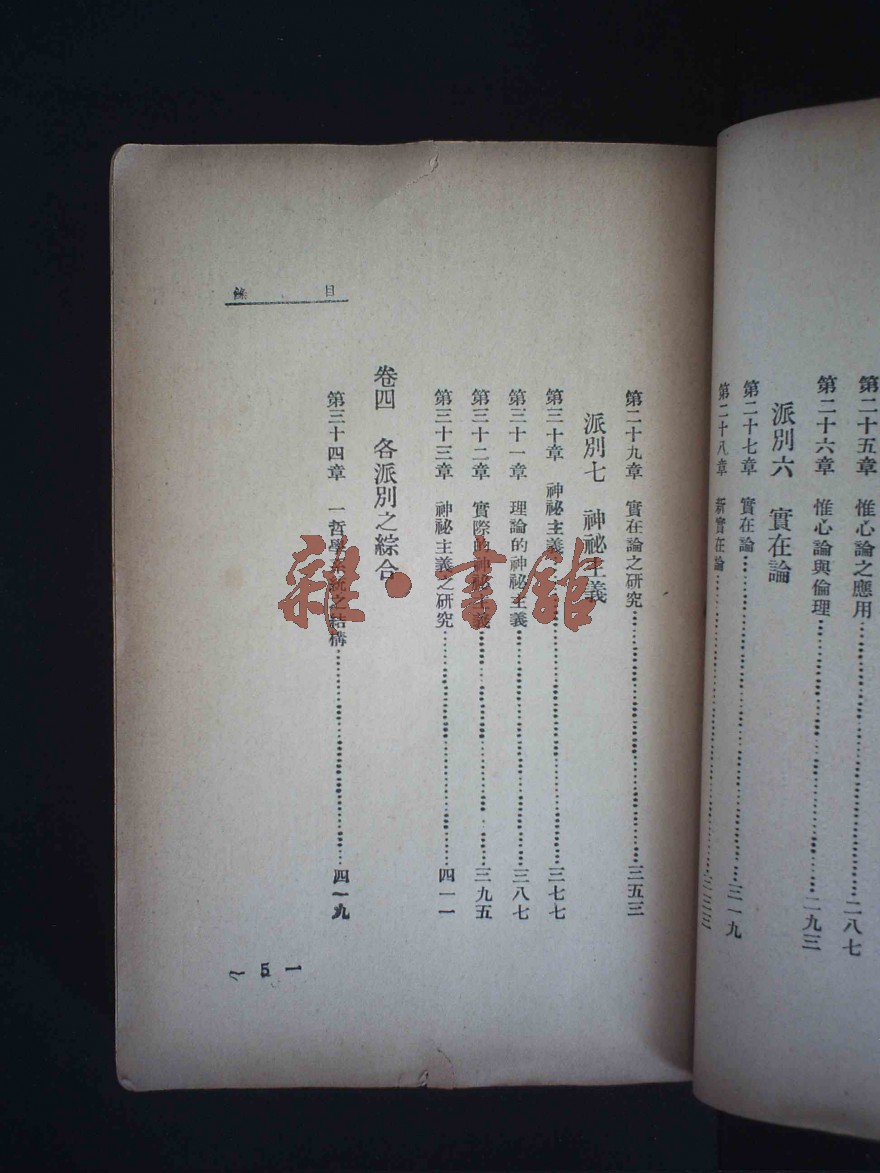 第二十五章　惟心論之應用……二八七
第二十六章　惟心論與倫理……二九三
派別六　實在論
第二十七章　實在論……三一九
第二十八章　新實在論……三三三
第二十九章　實在論之研究……三五三
派別七　神祕主義
第三十章　神祕主義……三七七
第三十一章　理論的神祕主義……三八七
第三十二章　實際的神祕主義……三九五
第三十三章　神祕主義之研究……四一一
卷四　各派別之綜合
第三十四章　一哲學系統之結構……四一九
目錄
5
雜·書館